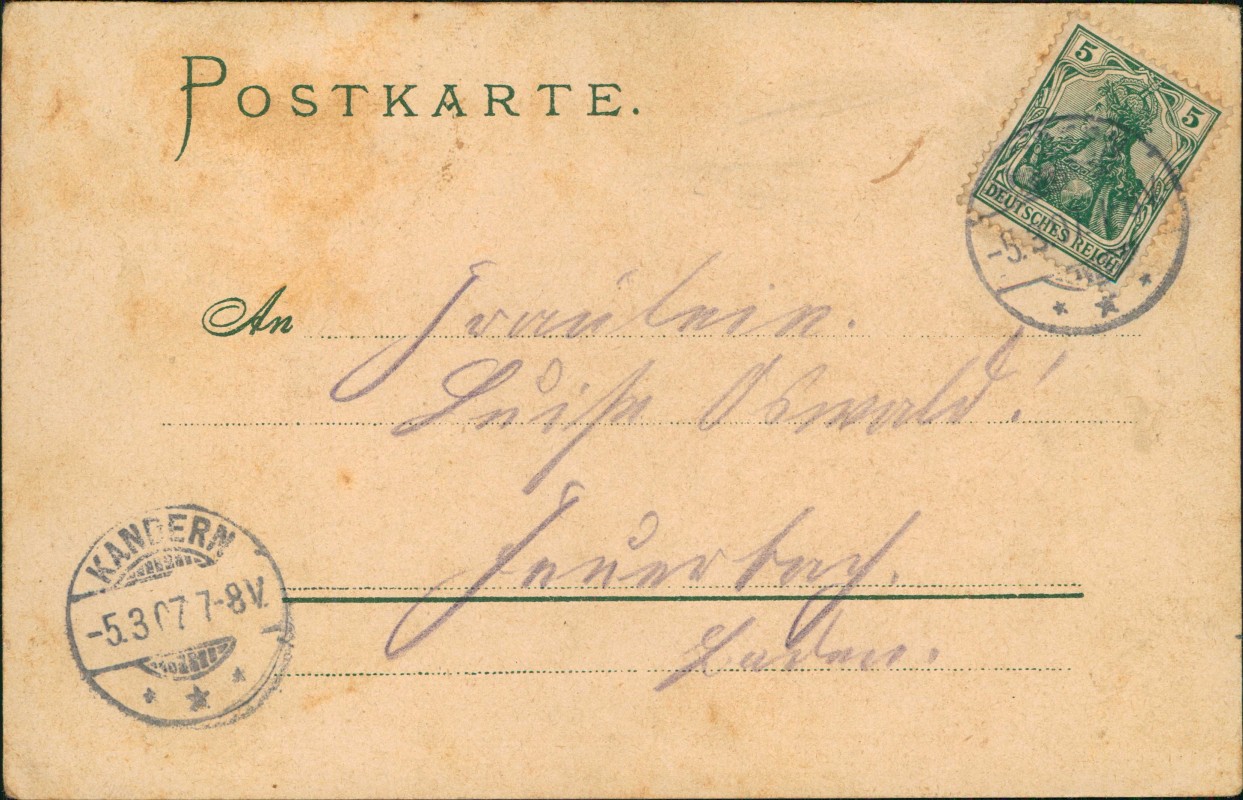 POSTKARTE.
5 5
DEUTSCHES REICH
-5.3
An Fräulein.
Luise Oswald!
Feuerbach.
Baden.
KANDERN
-5.3.07 7-8V.